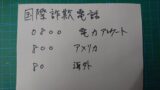 国際詐欺電話
0800 電力アンケート
800 アメリカ
80 海外